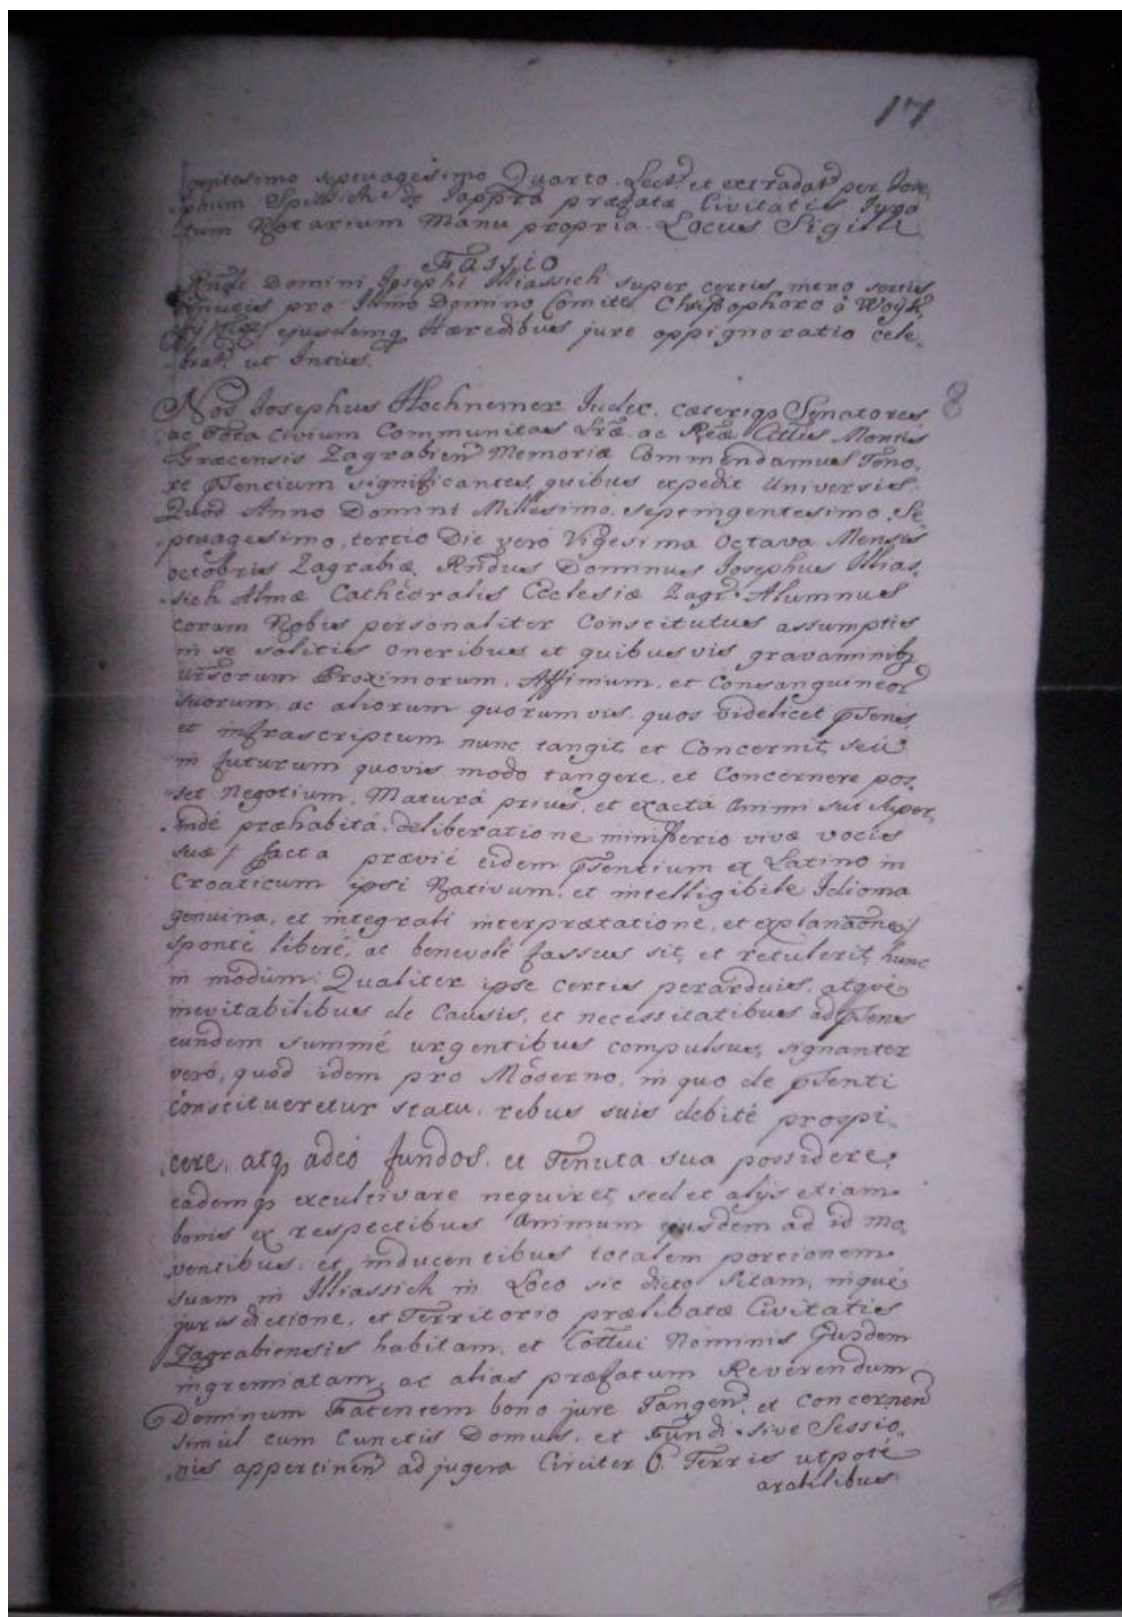 17
gentesimo septuagesimo Quarto. Lect. et extradat. per Jose,
phum Spissich de Jappra præfatæ Civitatis Jura
tum Notarium Manu propria. Locus Sigilli
Fassio
Rndi Domini Josephi Illiassich super certis mero
pro Illmo Domino Comite Christophoro à
ejusdemq Hæredibus jure oppignoratio cele,
brat. ut Intus.
8
Nos Josephus Judex, cæteriqs Senatores
ac Tota Civium Communitas Lræ ac Reæ Cittis Montis
Græcensis Zagrabien Memoriæ Commendamus Teno,
re Psentium significantes, quibus expedit Universis.
Quod Anno Domini Millesimo, septingentesimo, Se
ptuagesimo, tertio Die veró Vigesima Octava Mensis
octobris Zagrabiæ, Rndus Dominus Josephus Illias,
sich Almæ Cathedralis Ecclesiæ Zagr. Alumnus
coram Nobis personaliter Constitutus assumptis
in se solitis Oneribus et quibusvis gravaminibq
Proximorum, Affinium, et Consanguineor
suorum, ac aliorum quorumvis, quos videlicet Psens,
et infrascriptum nunc tangit, et Concernit, seu
in futurum quovis modo tangere, et Concernere pos,
set Negotium, Maturá prius, et exacta Animi sui super,
indé præhabitá, deliberatione ministerio vivæ vocis
suæ / facta prævié eidem Psentium ex Latino in
Croaticum ipsi Nativum, et intelligibile Idioma
genuina, et integrali interprætatione, et explanaone /
sponté liberé, ac benevolé fassus sit, et retulerit hunc
in modum: Qualiter ipse certis perarduis, atque
inevitabilibus de Causis, et necessitatibus ad Psens
eundem summé urgentibus compulsus, signanter
veró, quod idem pro Moderno, in quo de Psenti
constitueretur statu, rebus suis debité prospi,
cere, atqs adeó fundos, et Tenuta sua possidere,
eademqs excultivare nequiret, sed et alijs etiam
bonis ex respectibus Animum ejusdem ad id mo,
ventibus, et inducentibus totalem portionem
suam in Illiassich in Loco sic dicto sitam, inque
jurisdictione, et Territorio prælibatæ Civitatis
Zagrabiensis habitam, et Cottui Nominis Ejusdem
ingremiatam, ac alias præfatum Reverendum
Dominum Fatentem bono jure Tangen, et Concernen
simúl cum Cunctis Domus, et Fundi sive Sessio,
nis appertinen ad jugera Circiter 6. Terris utpoté
arabilibus